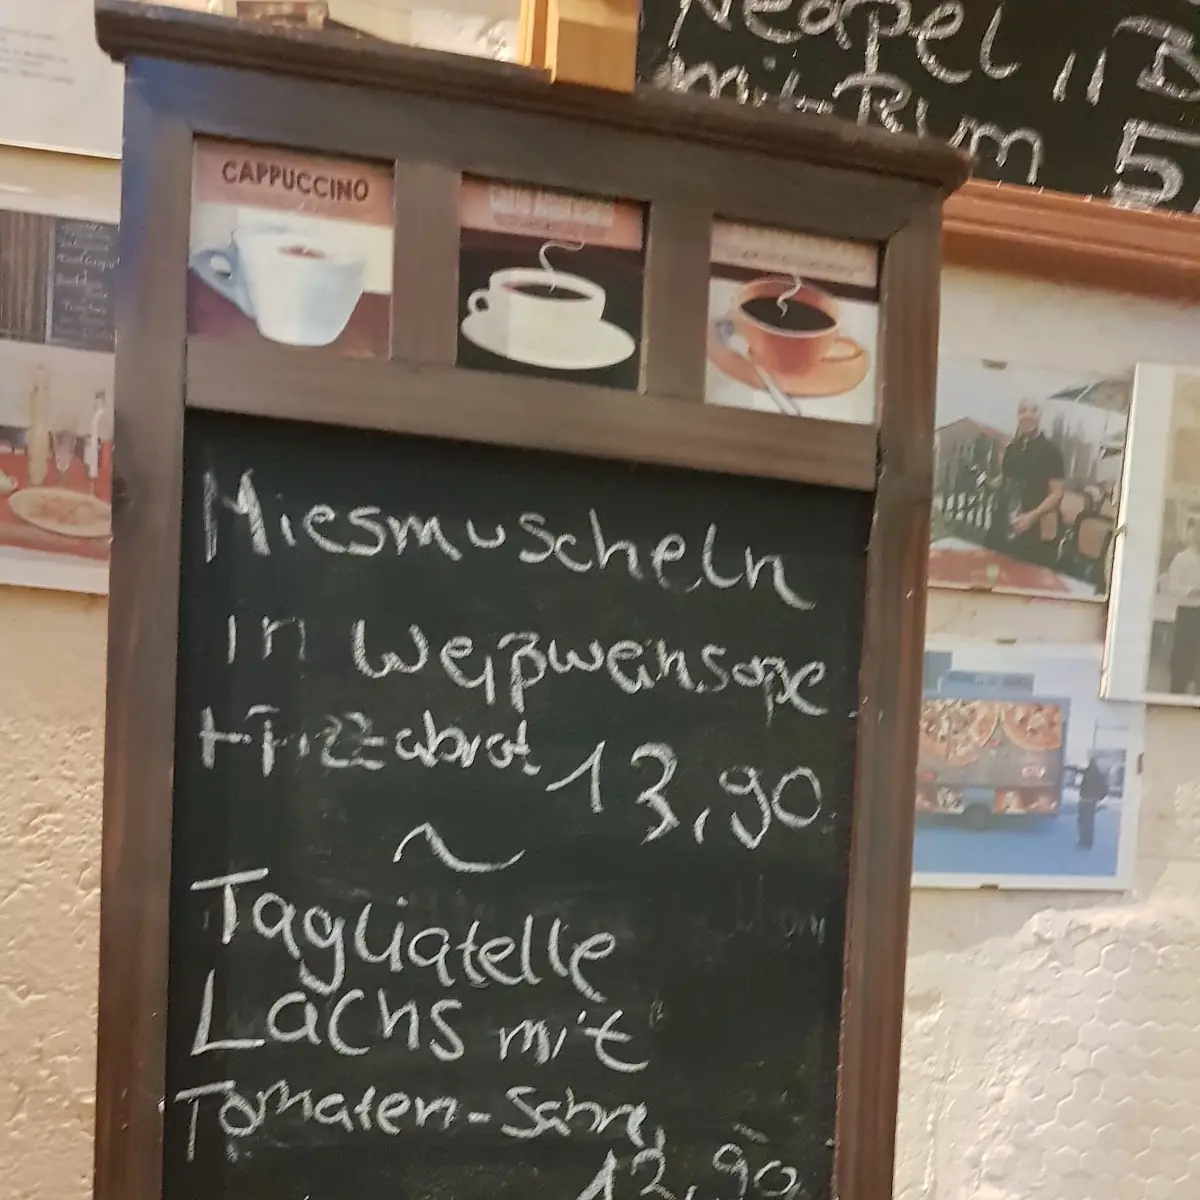 Neapel
mit Rum 5
CAPPUCCINO
Miesmuscheln
in Weißweinsope
+Pizzabrot 13,90
~
Tagliatelle
Lachs mit
Tomaten-Sahne
12,90